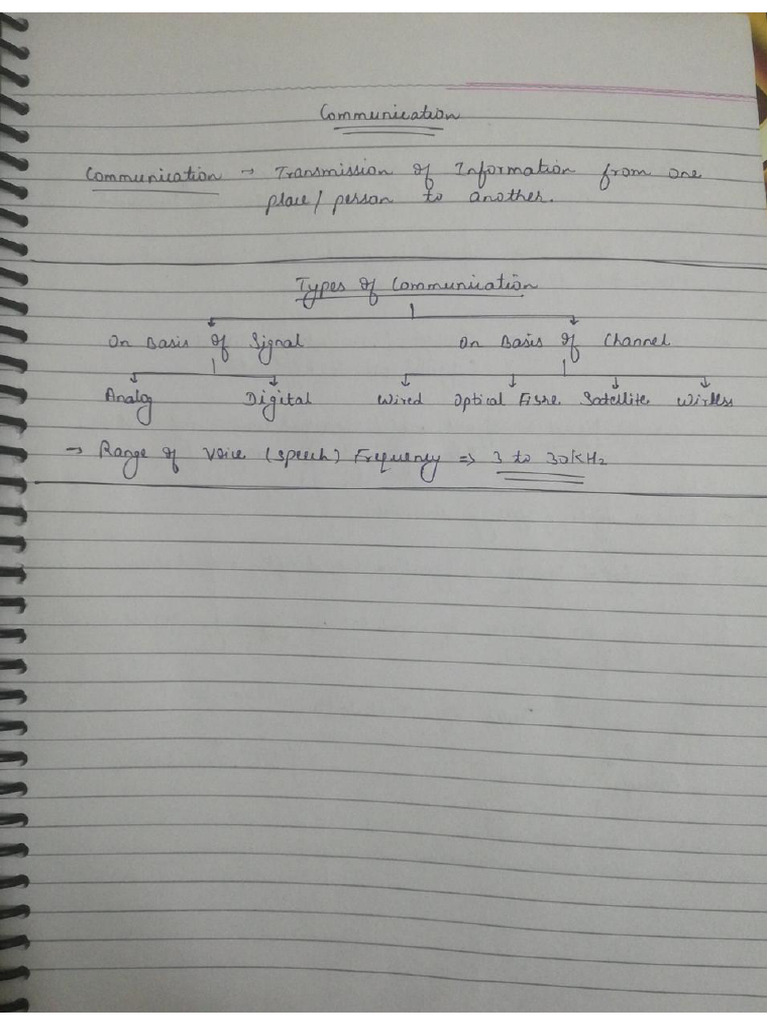 Communication
Communication → Transmission of Information from one
place/ person to another.
Types of Communication
On Basis of Signal On Basis of Channel
Analog Digital Wired Optical Fibre Satellite Wirless
→ Range of Voice (speech) Frequency => 3 to 30KHz